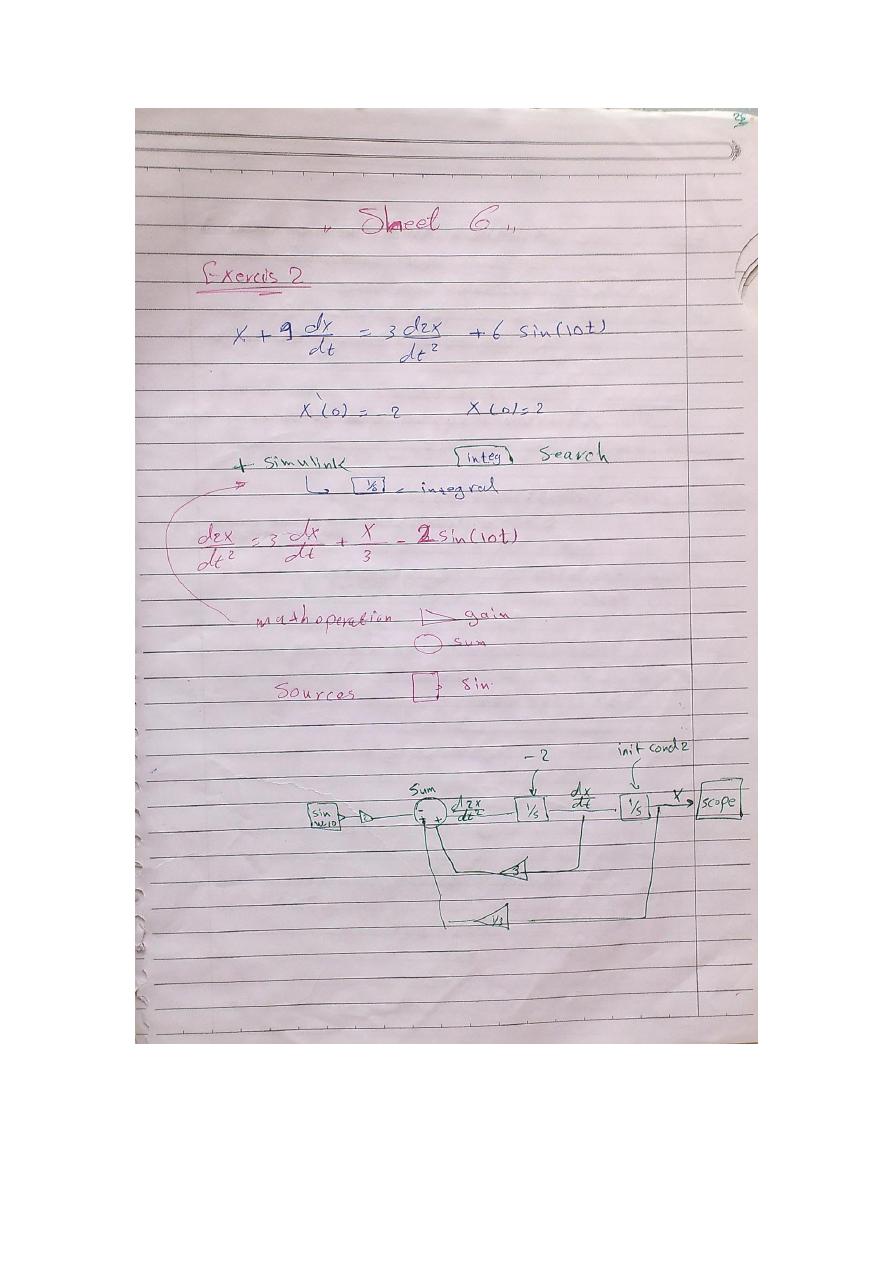 " Sheet 6 "
Exercis 2
x + 9 dx/dt = 3 d2x/dt² + 6 sin(10t)
x`(0) = - 2 x(0) = 2
+ simulink integ Search
1/s = integral
d2x/dt² = 3 dx/dt + x/3 - 2 sin(10t)
math operation gain
sum
Sources sin
- 2 init cond 2
Sum
sin d2x/dt² 1/s dx/dt 1/s x scope
- + +
3
1/3